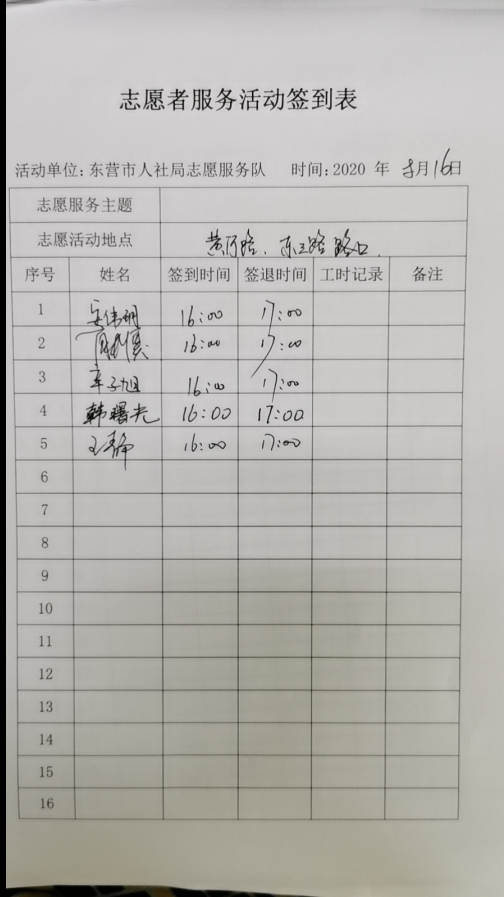 志愿者服务活动签到表
活动单位:东营市人社局志愿服务队 时间:2020 年 8月16日
志愿服务主题
志愿活动地点 黄河路、东三路路口
序号 姓名 签到时间 签退时间 工时记录 备注
1 安伟明 16:00 17:00
2 16:00 17:00
3 辛子旭 16:00 17:00
4 韩曙光 16:00 17:00
5 王静 16:00 17:00
6
7
8
9
10
11
12
13
14
15
16